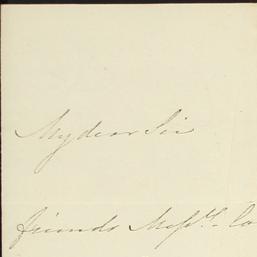 My dear Sir
friends Messrs. Co